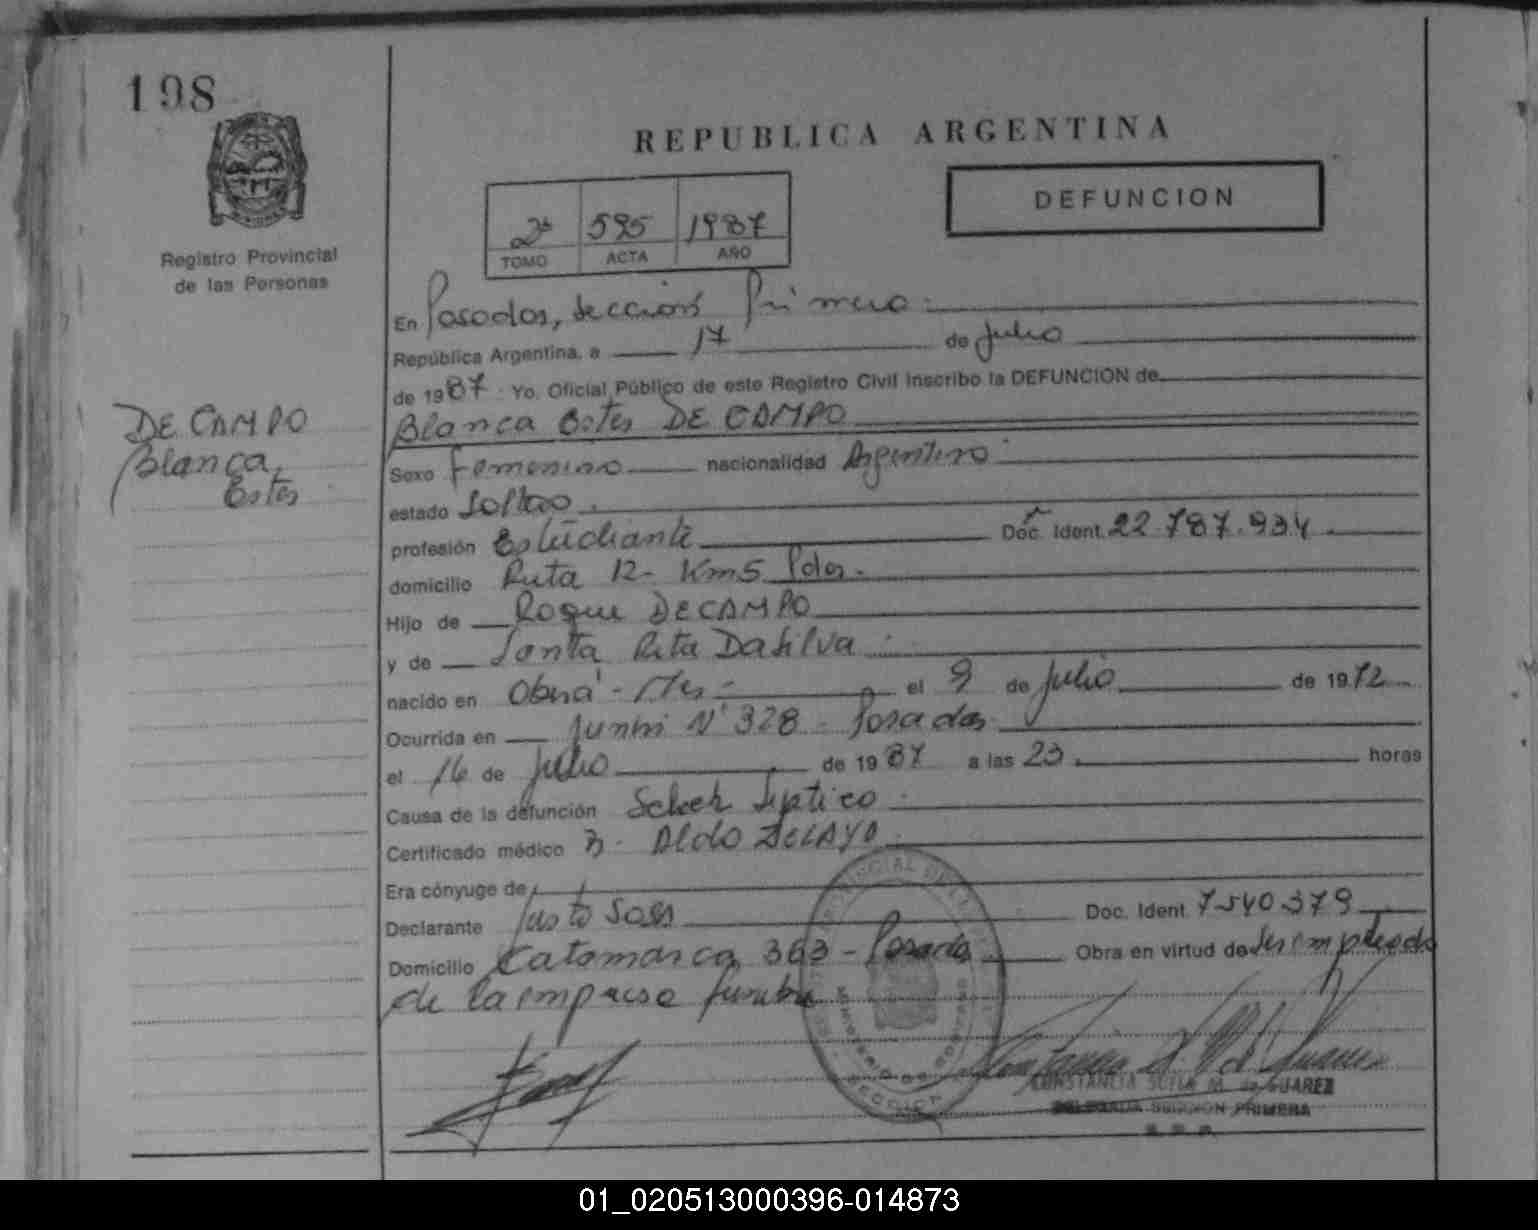 198
REPUBLICA ARGENTINA
DEFUNCION
2ª 595 1987
TOMO ACTA AÑO
Registro Provincial
de las Personas
En Posadas, Sección Primera
República Argentina, a 17 de Julio
de 1987 Yo. Oficial Público de este Registro Civil inscribo la DEFUNCION de
DE CAMPO
Blanca
Ester
Blanca Ester DE CAMPO
Sexo Femenino nacionalidad Argentina
estado Soltera
profesión Estudiante Doc. Ident. 22.787.934
domicilio Ruta 12 - Km 5 Pdas.
Hijo de Roque DE CAMPO
y de Santa Rita DaSilva
nacido en Oberá - Mes - el 9 de Julio de 1972
Ocurrida en Junin Nº 328 - Posadas
el 16 de Julio de 1987 a las 23 horas
Causa de la defunción Schok Septico
Certificado médico Aldo
Era cónyuge de
Declarante Justo Sosa Doc. Ident. 7540379
Domicilio Catamarca 363 - Posadas Obra en virtud de Ser empleado
de la empresa funebre
CONSTANCIA M. de SUAREZ
DELEGADA SECCION PRIMERA
01_020513000396-014873